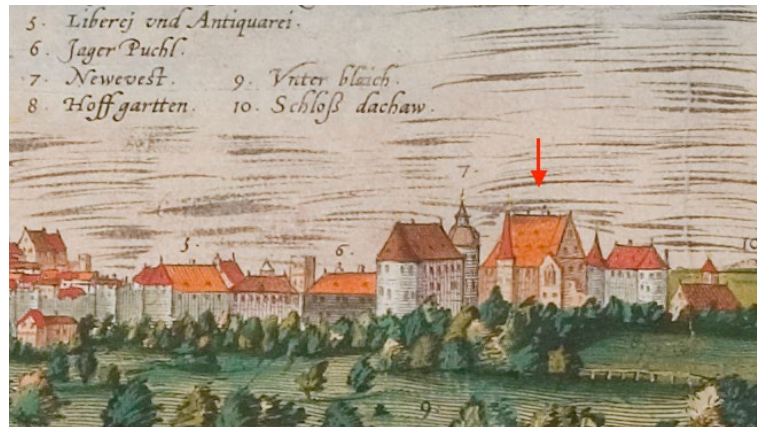 5. Liberej vnd Antiquarei.
6. Jager Puchl.
7. Newevest.
8 Hoffgartten.
9. Vnter blaich.
10. Schloß dachaw.
7.
5.
6.
10
9.